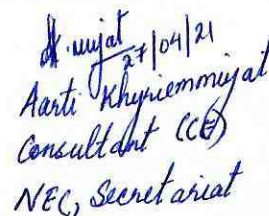 A. mujat
27/04/21
Aarti Khyriemmujat
Consultant (CE)
NEC, Secretariat